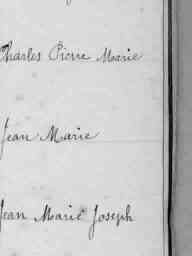 Charles Pierre Marie
Jean Marie
Jean Marie Joseph